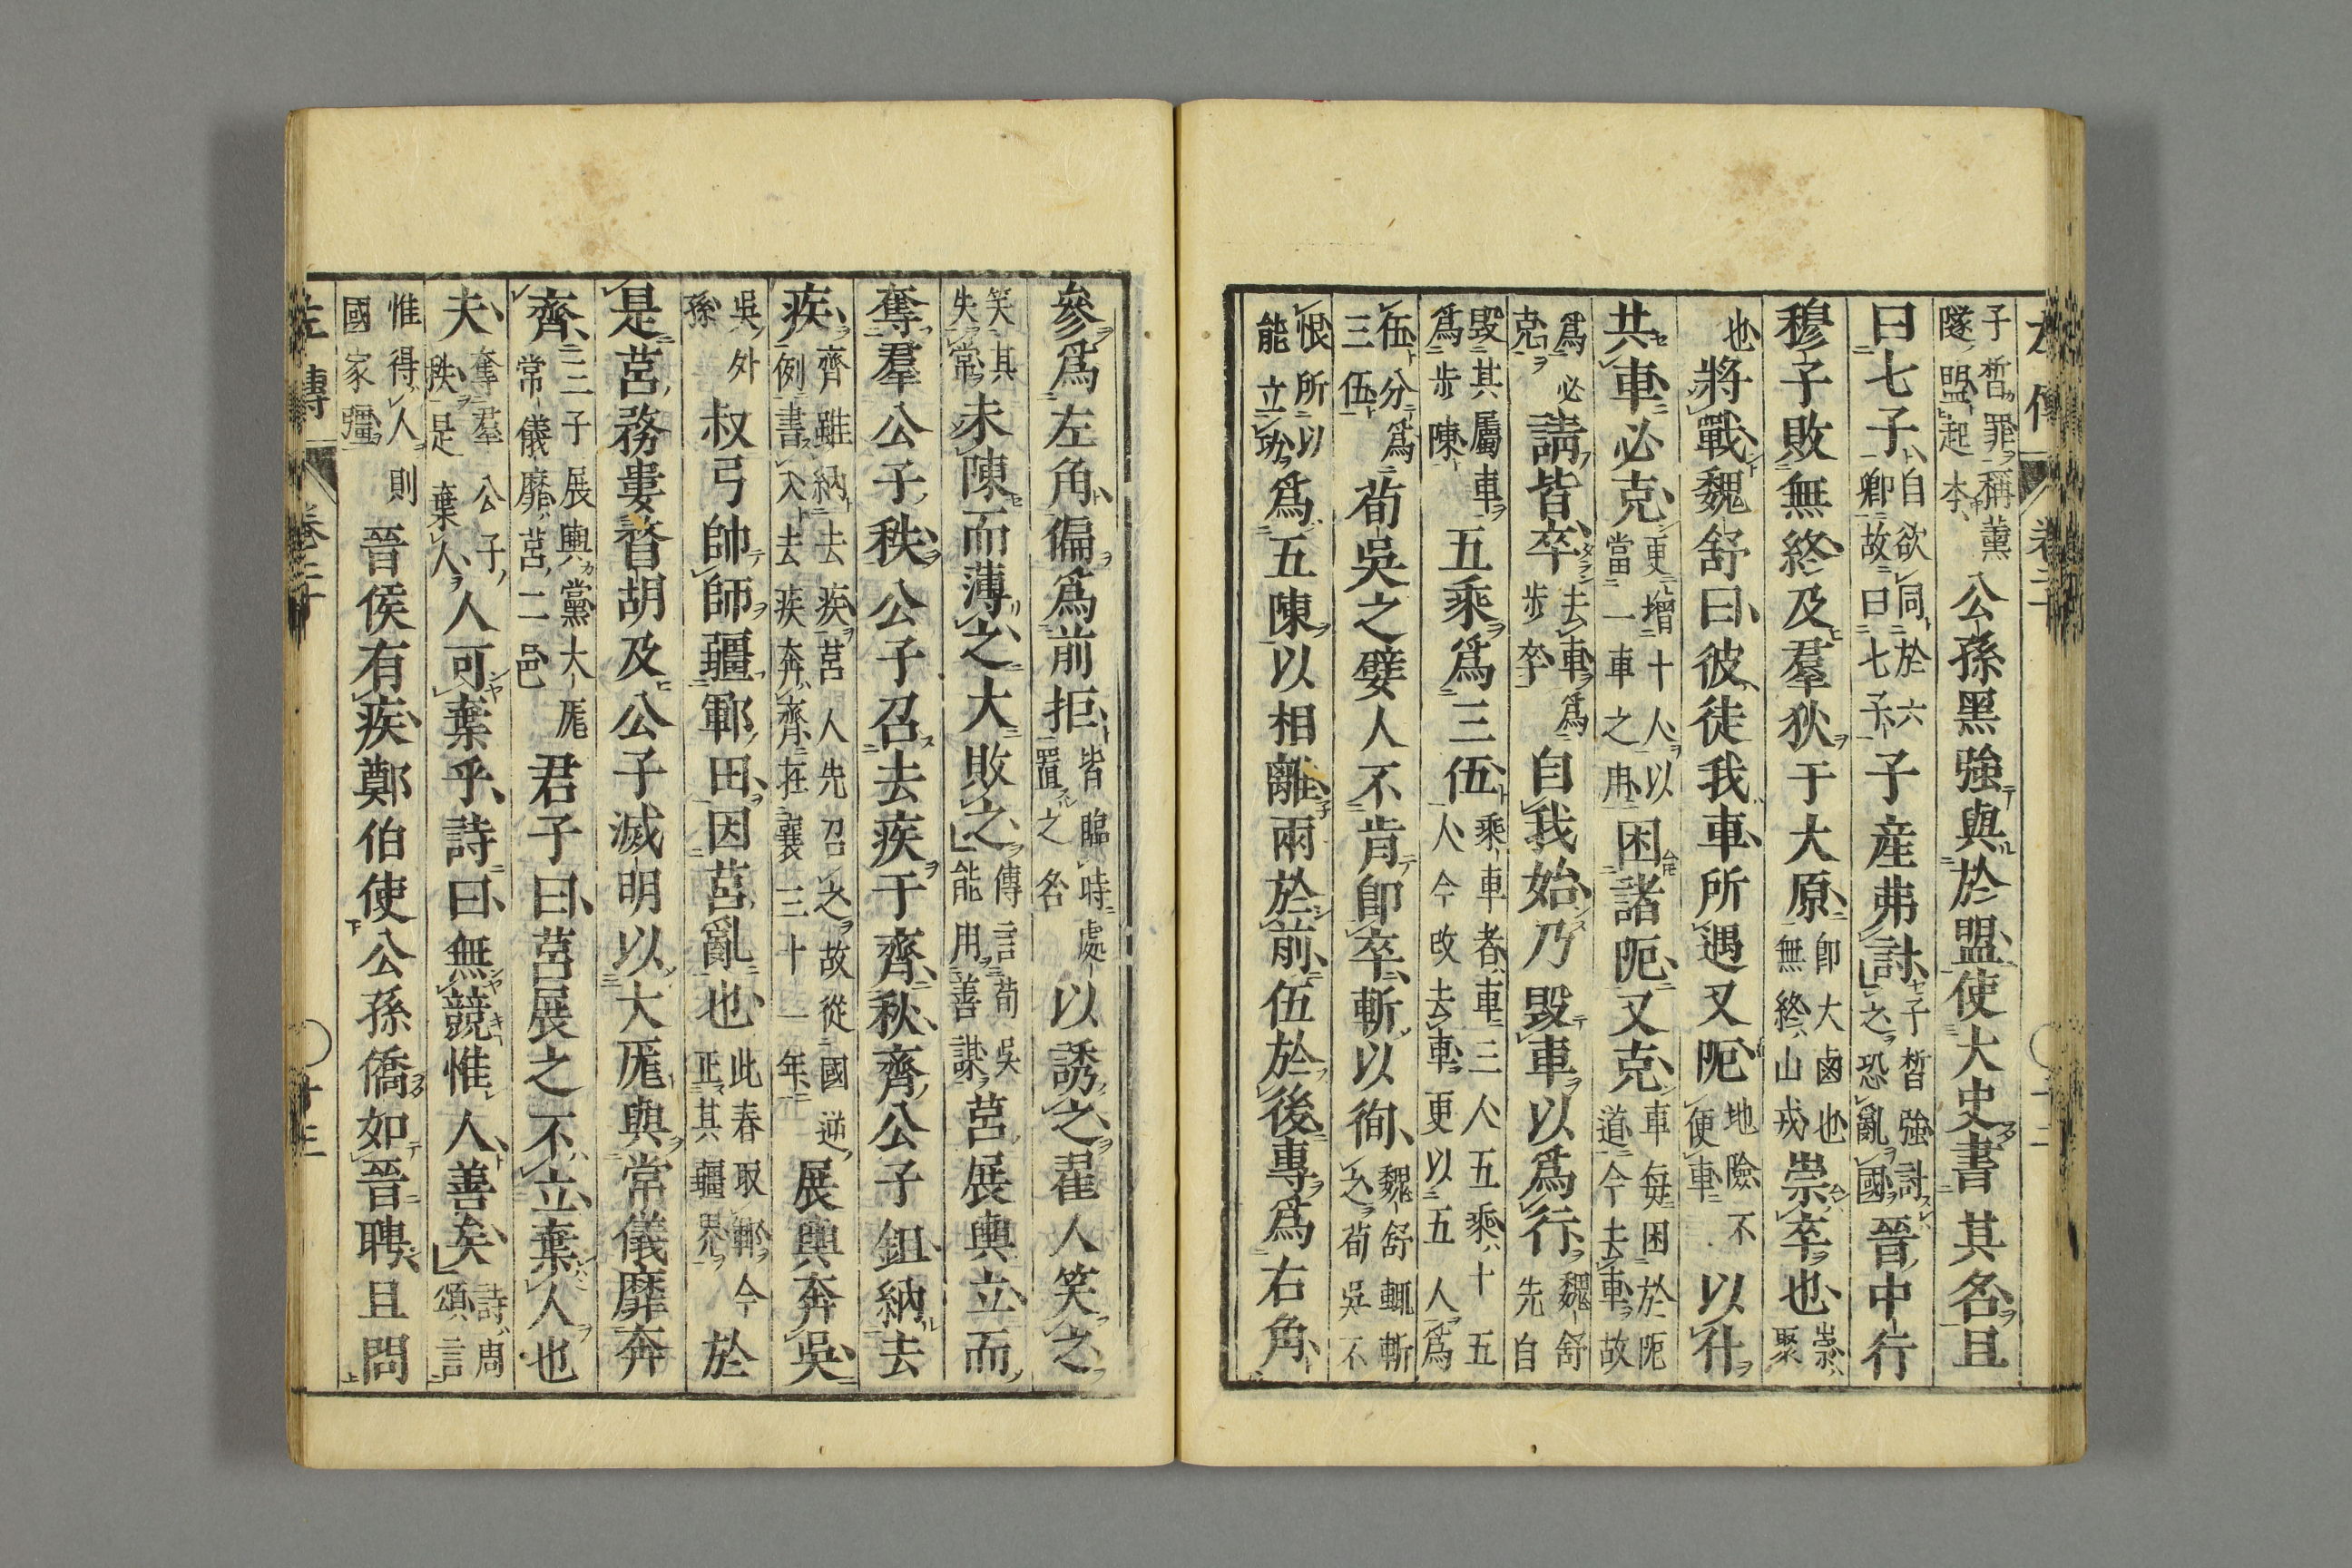 左傳 卷二十 十二
子晳罪稱薰隧盟起本公孫黑強與於盟使大史書其名且
曰七子自欲同於六卿故曰七子子産弗討子晳強討之恐亂國晉中行
穆子敗無終及羣狄于大原即大鹵也無終山戎崇卒也崇聚
也將戰魏舒曰彼徒我車所遇又阨地險不便車以什
共車必克更增十人以當一車之用困諸阨又克車每困於阨道今去車故
爲必克請皆卒去車爲步卒自我始乃毀車以爲行魏舒先自
毀其屬車爲步陳五乘爲三伍乘車者車三人五乘十五人今改去車更以五人爲
伍分爲三伍荀吳之嬖人不肯卽卒斬以徇魏舒輒斬之荀吳不
恨所以能立功爲五陳以相離兩於前伍於後專爲右角
參爲左角偏爲前拒皆臨時處置之名以誘之翟人笑之
笑其失常未陳而薄之大敗之傳言荀吳能用善謀莒展輿立而
奪羣公子秩公子召去疾于齊秋齊公子鉏納去
疾齊雖納去疾莒人先召之故從國逆例書入去疾奔齊在襄三十一年展輿奔吳
吳外孫叔弓帥師疆鄆田因莒亂也此春取鄆今正其疆界於
是莒務婁瞀胡及公子滅明以大厖與常儀靡奔
齊三子展輿黨大厖常儀靡莒二邑君子曰莒展之不立棄人也
夫奪羣公子秩是棄人人可棄乎詩曰無競惟人善矣詩周頌言
惟得人則國家彊晉侯有疾鄭伯使公孫僑如晉聘且問
左傳 卷二十 十三